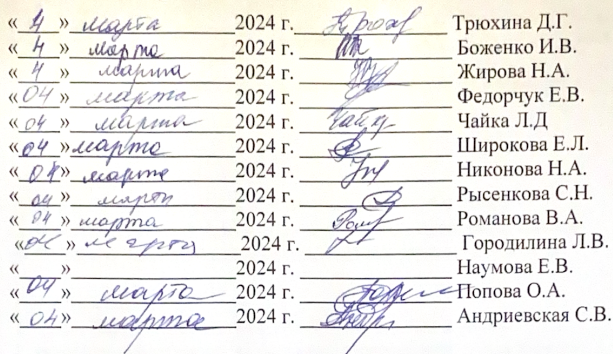 « 4 » марта 2024 г. Трюхина Д.Г.
« 4 » марта 2024 г. Боженко И.В.
« 4 » марта 2024 г. Жирова Н.А.
« 04 » марта 2024 г. Федорчук Е.В.
« 04 » марта 2024 г. Чайка Л.Д
« 04 » марта 2024 г. Широкова Е.Л.
« 04 » марта 2024 г. Никонова Н.А.
« 04 » марта 2024 г. Рысенкова С.Н.
« 04 » марта 2024 г. Романова В.А.
« » марта 2024 г. Городилина Л.В.
« » 2024 г. Наумова Е.В.
« 04 » марта 2024 г. Попова О.А.
« 04 » марта 2024 г. Андриевская С.В.